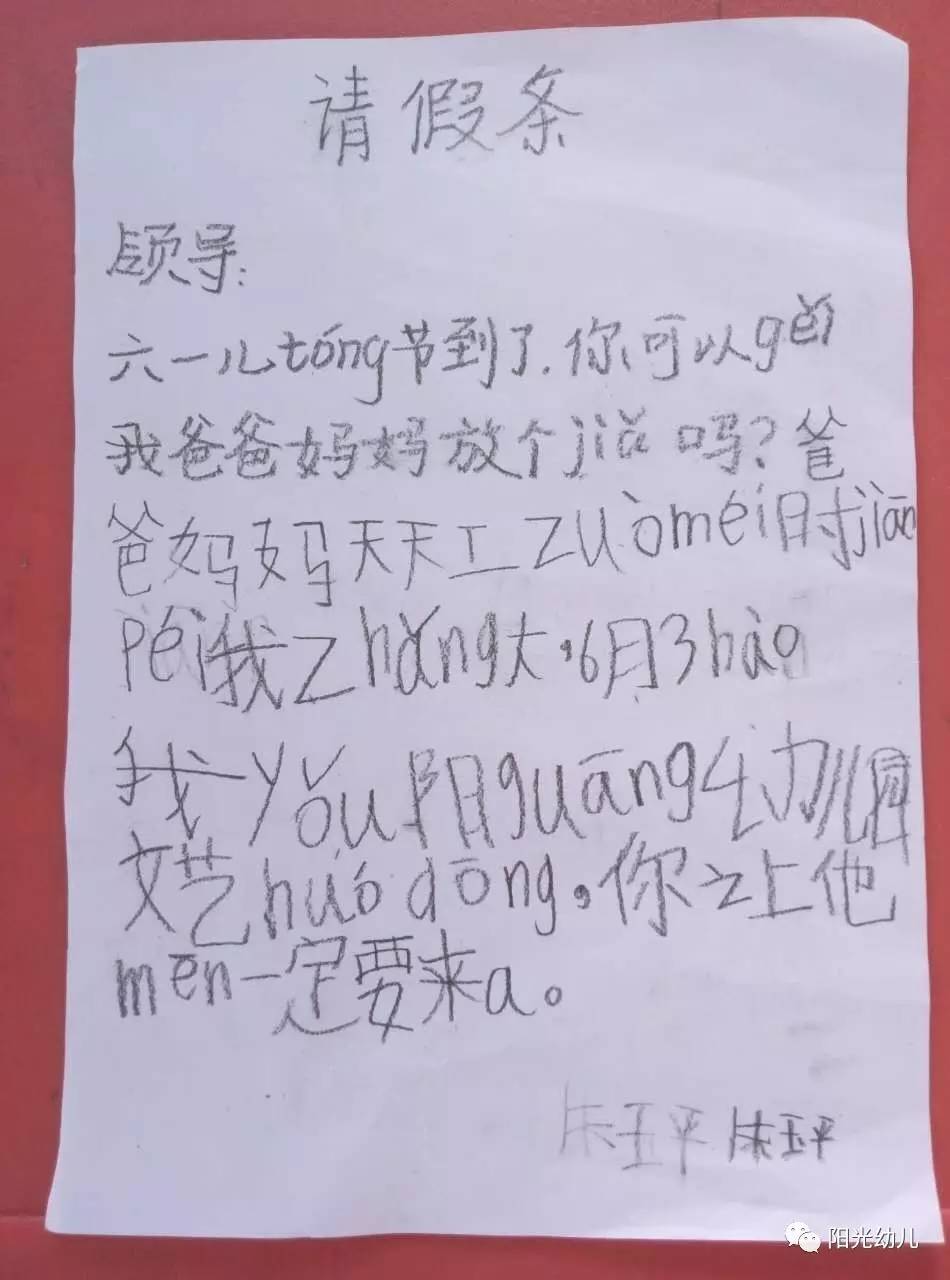 请假条
领导:
六一儿tóng节到了.你可以gěi
我爸爸妈妈放个jià吗?爸
爸妈妈天天工zuòméi时jiān
péi我zhǎng大,6月3hào
我yǒu阳guāng幼儿园
文艺huódōng。你之上他
mēn一定要来a。
朱玉平 朱玉平
阳光幼儿